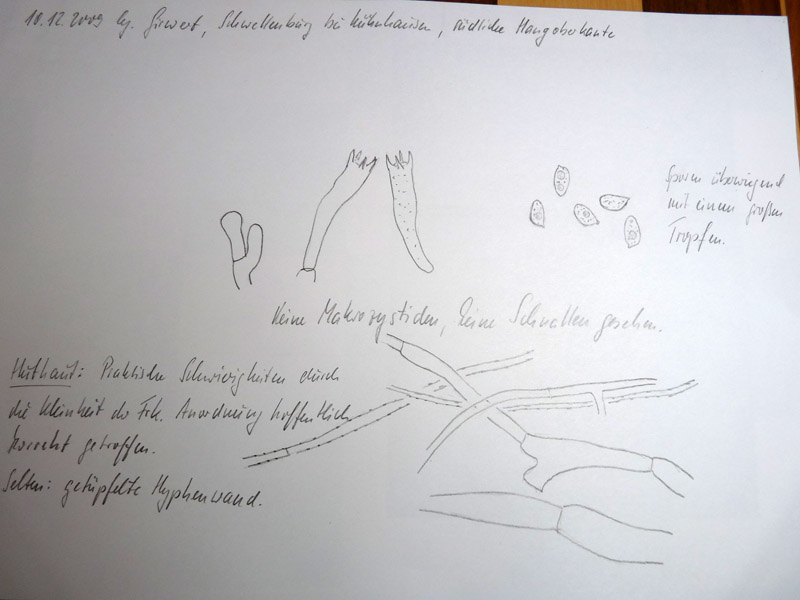 10.12.2009 leg. Girwert, Schwellenburg bei Kühnhausen, südliche Hangoberkante
Sporen überwiegend
mit einem großen
Tropfen.
Keine Makrozystiden, keine Schnallen gesehen.
Huthaut: Praktische Schwierigkeiten durch
die Kleinheit d. Frk. Anordnung hoffentlich
korrekt getroffen.
Selten: getüpfelte Hyphenwand.